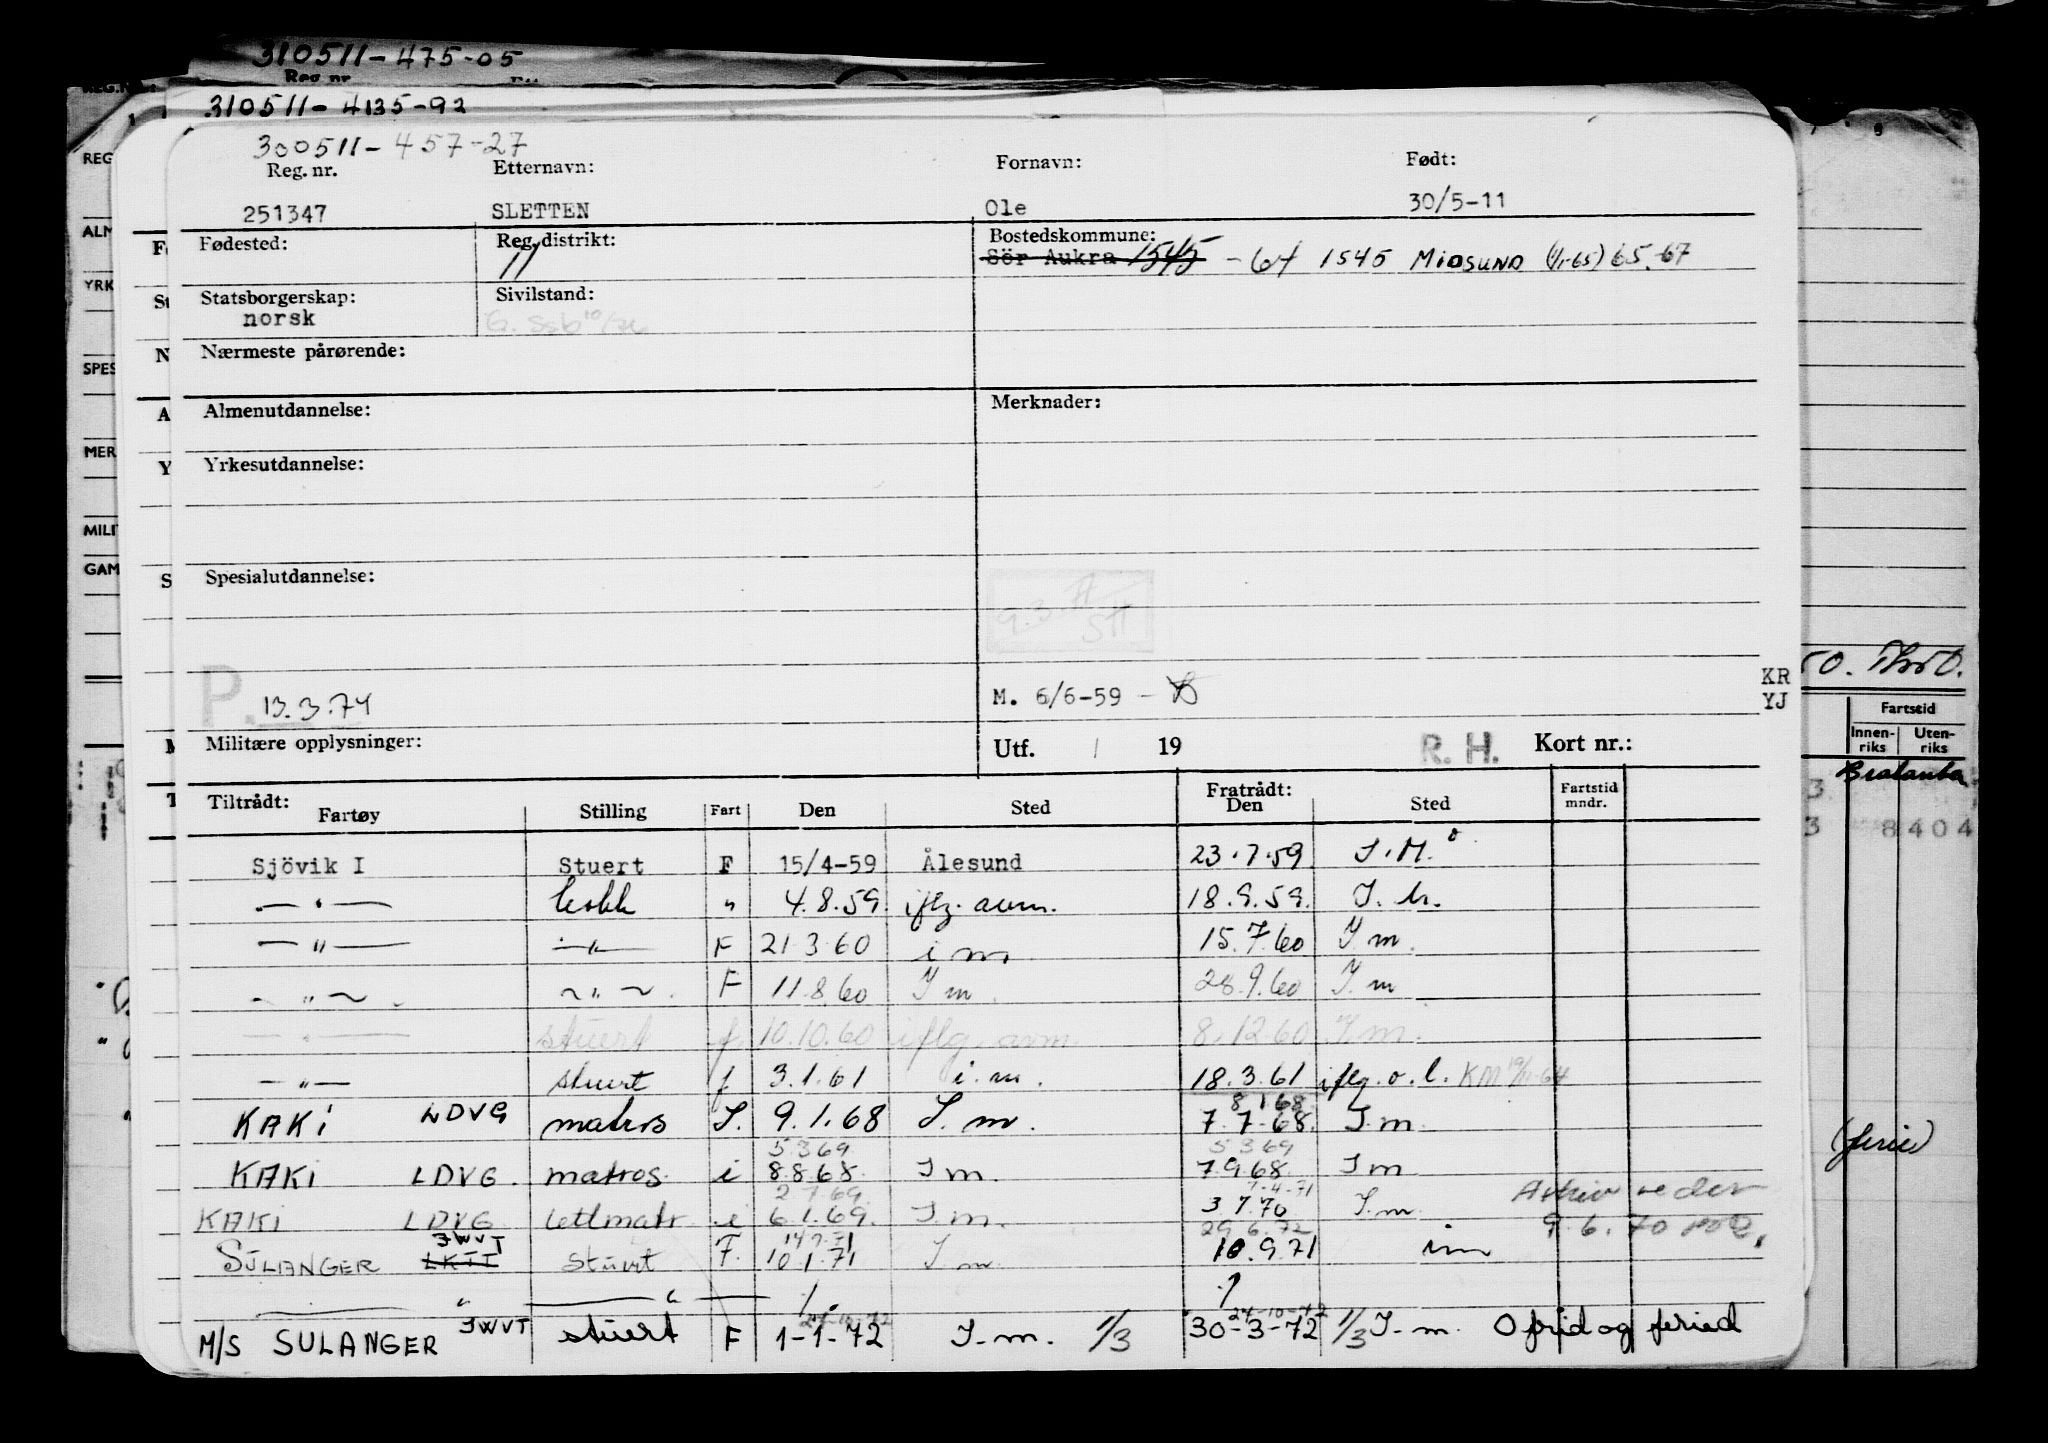 310511-475-05
Reg nr
310511-4135-92
300511-457-27
Reg. nr.
Etternavn:
Fornavn:
Født:
251347
SLETTEN
Ole
30/5-11
Fødested:
Reg. distrikt:
11
Bostedskommune:
Sör Aukra 1545 - 64 1545 MIDSUND (1/1-65) 65.-67
Statsborgerskap:
norsk
Sivilstand:
Nærmeste pårørende:
Almenutdannelse:
Merknader:
Yrkesutdannelse:
Spesialutdannelse:
P.
13.3.74
M. 6/6-59 -
KR
YJ
Militære opplysninger:
Utf. / 19
R. H.
Kort nr.:
Tiltrådt:
Fartøy
Stilling
Fart
Den
Sted
Fratrådt:
Den
Sted
Fartstid
mndr.
Sjövik I Stuert F 15/4-59 Ålesund 23.7.59 I.M.
— " — kokk " 4.8.59. iflg. avm. 18.9.59. I.m.
— " — — " — F 21.3.60 i m 15.7.60 I m.
— " — — " — F 11.8.60 I m. 28.9.60 I.m
— " — stuert f 10.10.60 iflg. avm 8.12.60 I.m.
— " — stuert f 3.1.61 i.m. 18.3.61 iflg.o.l. KM
8.1.68
KAKI LDVG matros I. 9.1.68 I.m. 7.7.68. I.m
5369 5369
KAKI LDVG. matros. i 8.8.68. I m. 7.9.68 I m
2.7.69. 7-4-71
KAKI LDVG lettmatr. i 6.1.69. I m. 3.7.70 I.m
Arkiv reder
9.6.70
JWVT 14.9.71 29.6.72
SULANGER LKII stuert F. 10.1.71 I m. 10.9.71 im
— " — — " —
24-10-72
M/S SULANGER JWVT stuert F 1-1-72 I-m. 1/3 30-3-72 1/3 I-m. O frid og feried
REG
ALM
YRK
SPES
MER
MILI
GAM
Fartstid
Innen-
riks
Uten-
riks
8404
(ferie)